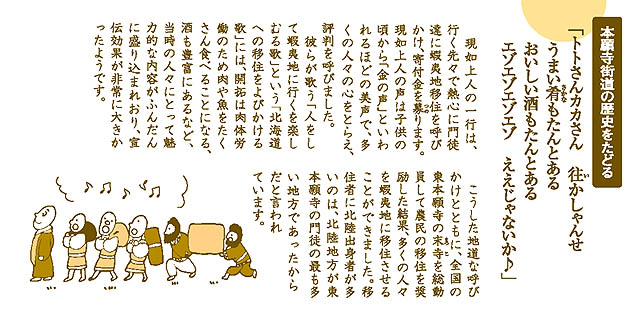 本願寺街道の歴史をたどる
「トトさんカカさん　往かしゃんせ
うまい肴もたんとある
おいしい酒もたんとある
エゾエゾエゾエゾ　ええじゃないか♪」
現如上人の一行は、
行く先々で熱心に門徒
達に蝦夷地移住を呼び
かけ、寄付金を募ります。
現如上人の声は子供の
頃から「金の声」といわ
れるほどの美声で、多
くの人々の心をとらえ、
評判を呼びました。
彼らが歌う「人をし
て蝦夷地に行くを楽し
むる歌」という「北海道
への移住をよびかける
歌」には、開拓は肉体労
働のため肉や魚をたく
さん食べることになる、
酒も豊富にあるなど、
当時の人々にとって魅
力的な内容がふんだん
に盛り込まれおり、宣
伝効果が非常に大きか
ったようです。
こうした地道な呼び
かけとともに、全国の
東本願寺の末寺を総動
員して農民の移住を奨
励した結果、多くの人々
を蝦夷地に移住させる
ことができました。移
住者に北陸出身者が多
いのは、北陸地方が東
本願寺の門徒の最も多
い地方であったから
だと言われ
ています。